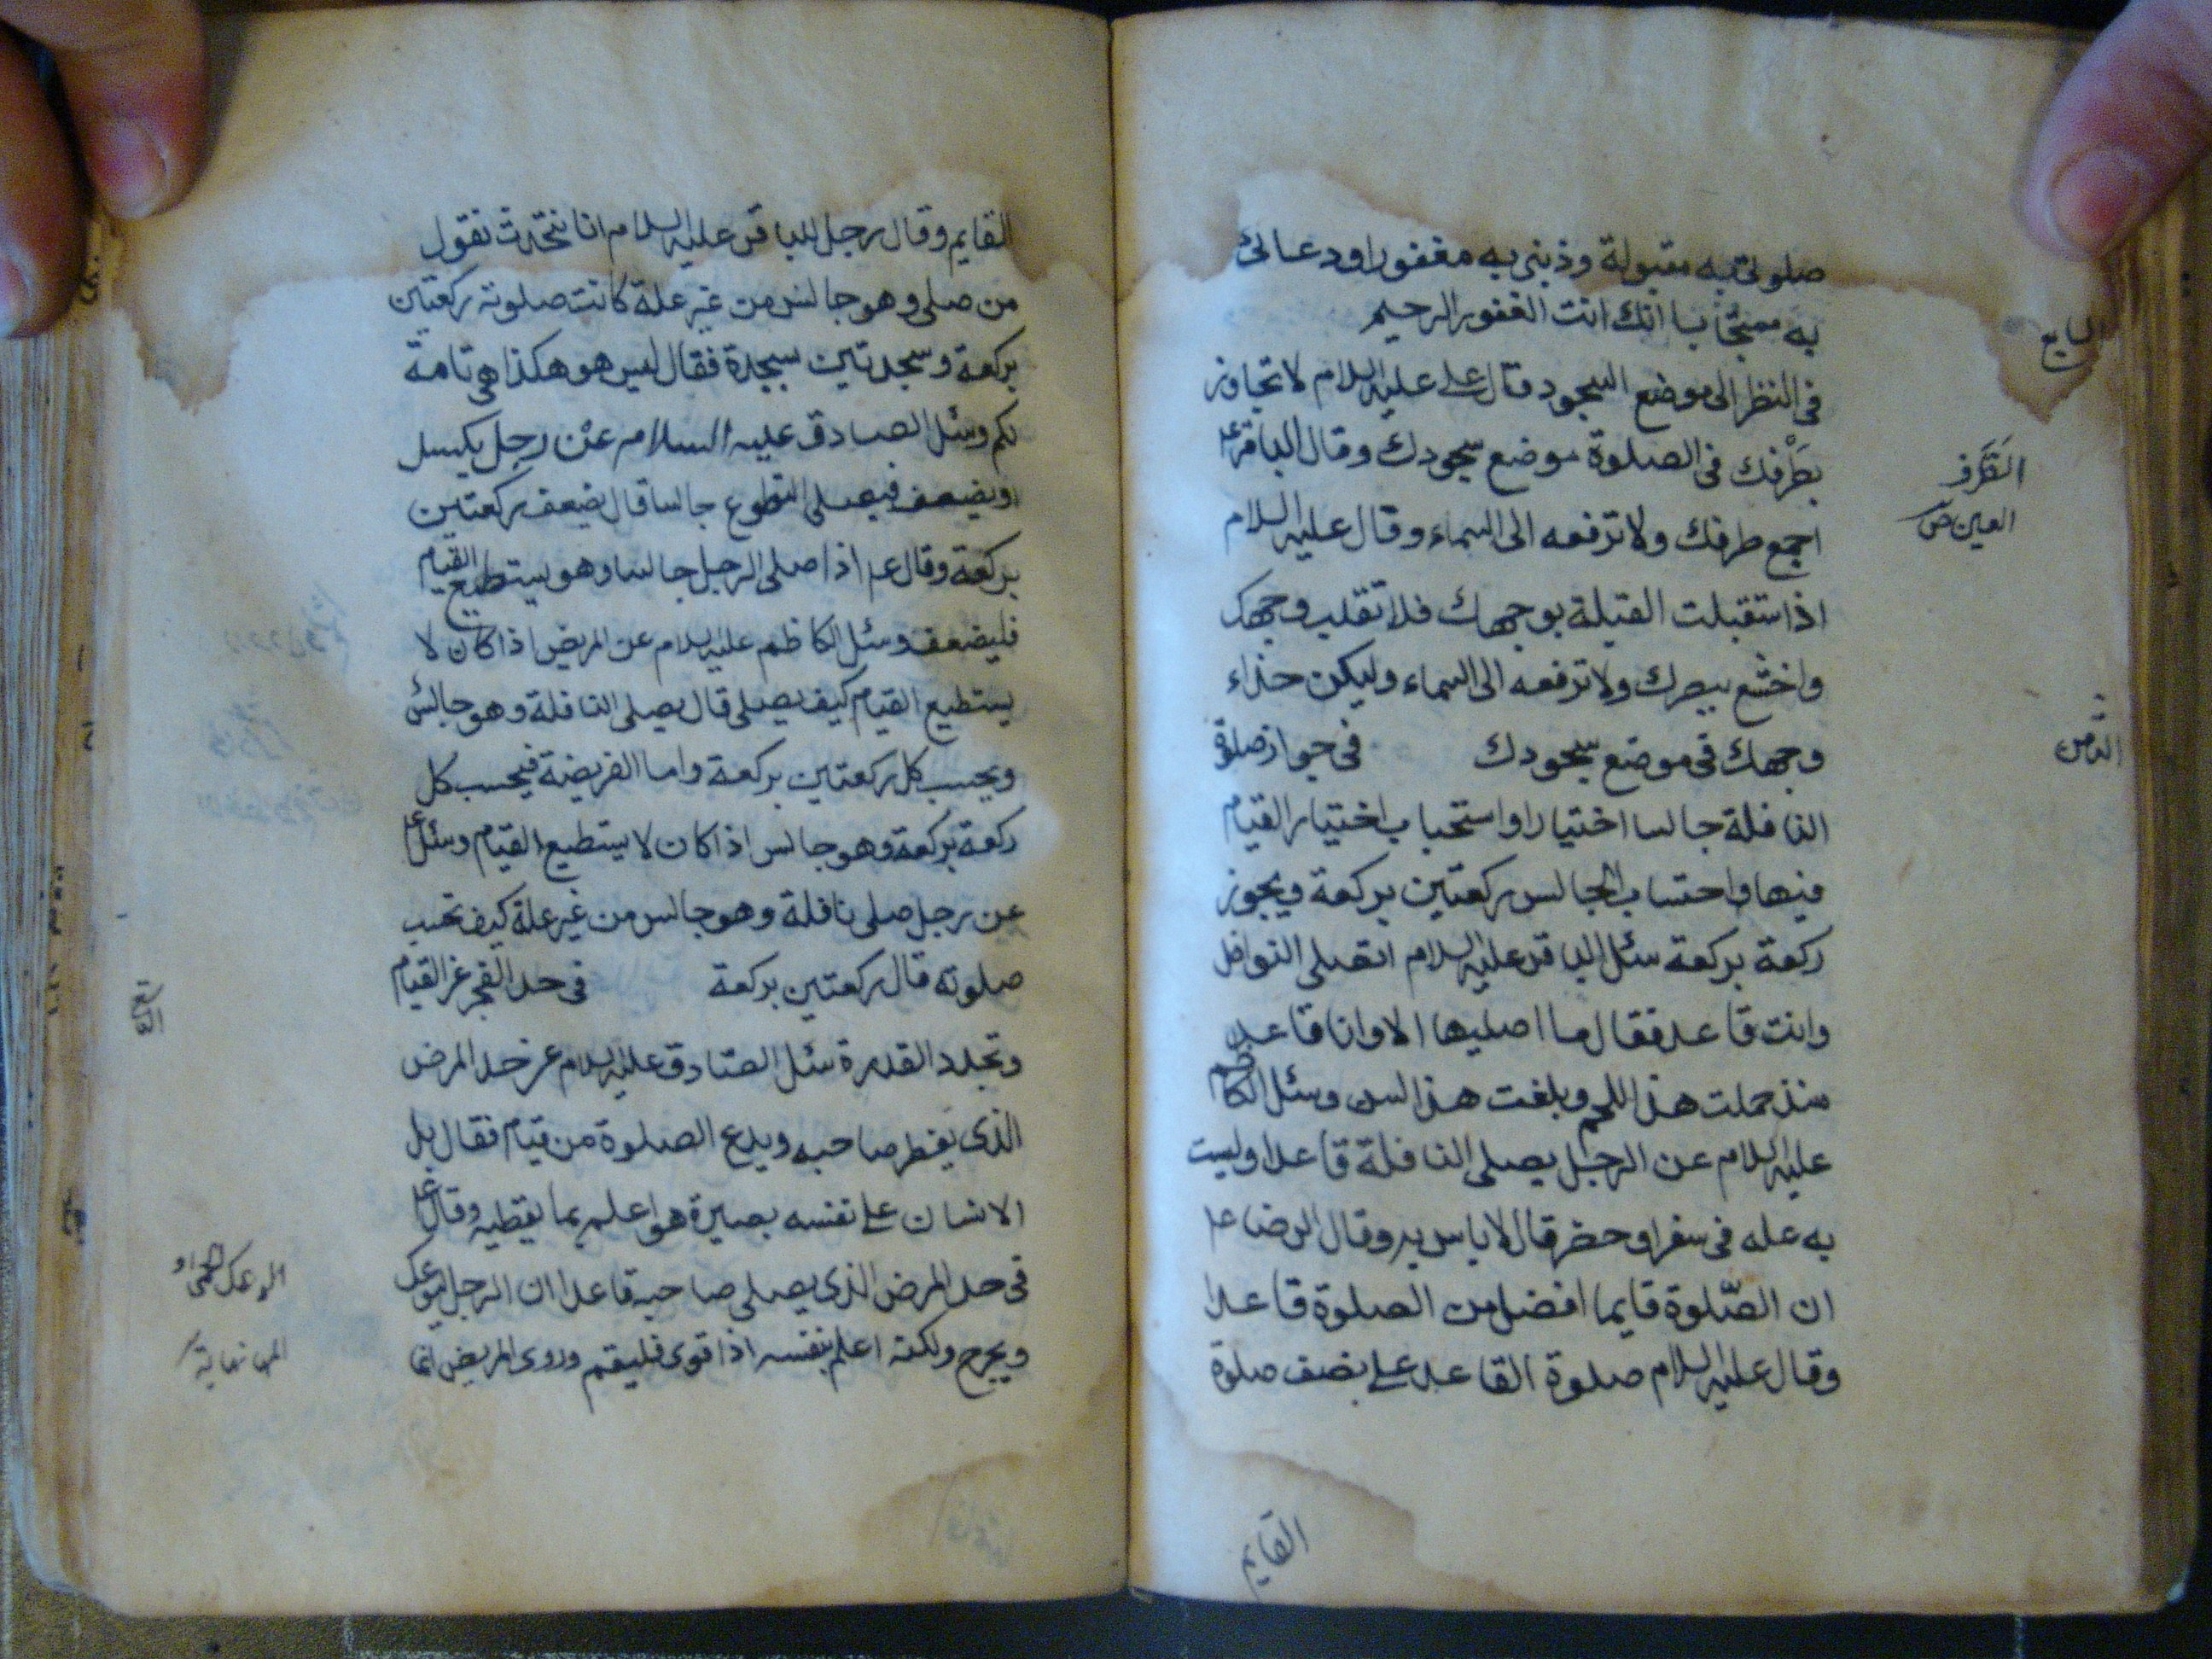 صلوتي به مقبولة وذنبي به مغفورا ودعائي
به مستجابا انك انت الغفور الرحيم
السابع
في النظر الى موضع السجود قال علي عليه السلام لا تجاوز
بطَرْفك في الصلوة موضع سجودك وقال الباقر ع
الطَرْف
العين ص
اجمع طرفك ولا ترفعه الى السماء وقال عليه السلام
اذا ستقبلت القبلة بوجهك فلا تقلب وجهك
واخشع ببصرك ولا ترفعه الى السماء وليكن حذاء
وجهك في موضع سجودك في جواز صلوة
الثامن
النافلة جالسا اختيارا واستحباب اختيار القيام
فيها واحتساب الجالس ركعتين بركعة ويجوز
ركعة بركعة سئل الباقر عليه السلام اتصلي النوافل
وانت قاعد فقال ما اصليها الا وانا قاعد
منذ حملت هذا اللحم وبلغت هذا السن وسئل الكاظم
عليه السلام عن الرجل يصلي النافلة قاعدا وليست
به عله في سفر او حضر قال لا باس به وقال الرضا ع
ان الصّلوة قايما افضل من الصلوة قاعدا
وقال عليه السلام صلوة القاعد على نصف صلوة
القايم
القايم وقال رجل للباقر عليه السلام انا نتحدث نقول
من صلى وهو جالس من غير علة كانت صلوته ركعتين
بركعة وسجدتين بسجدة فقال ليس هو هكذا هي تامة
لكم وسئل الصادق عليه السلام عن رجل يكسل
او يضعف فيصلي التطوع جالسا قال يضعف ركعتين
بركعة وقال ع اذا صلى الرجل جالسا وهو يستطيع القيام
فليضعف وسئل الكاظم عليه السلام عن المريض اذا كان لا
يستطيع القيام كيف يصلي قال يصلي النافلة وهو جالس
ويحسب كل ركعتين بركعة واما الفريضة فيحسب كل
ركعة بركعة وهو جالس اذا كان لا يستطيع القيام وسئل ع
عن رجل صلى نافلة وهو جالس من غير علة كيف تحسب
صلوته قال ركعتين بركعة في حد العجز عن القيام
وتجدد القدرة سئل الصّادق عليه السلام عن حد المرض
الذي يفطر صاحبه ويدع الصلوة من قيام فقال بل
الانسان على نفسه بصيرة هو اعلم بما يطيقه وقال ع
في حد المرض الذي يصلي صاحبه قاعدا ان الرجل ليوعك
ويحرج ولكنه اعلم بنفسه اذا قوى فليقم وروى المريض انما